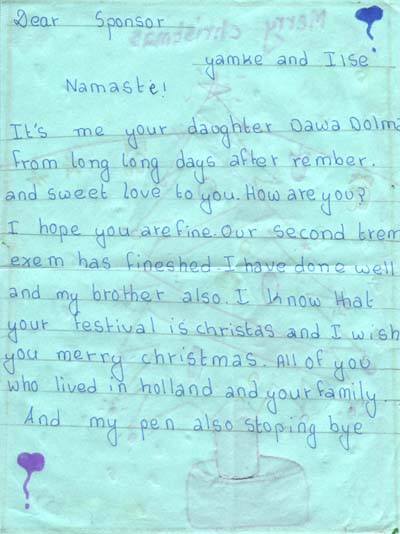 Dear Sponsor
yamke and Ilse
Namaste!
It's me your daughter Dawa Dolma
From long long days after rember.
and sweet love to you. How are you?
I hope you are fine. Our second trem
exem has fineshed. I have done well
and my brother also. I know that
your festival is christas and I wish
you merry christmas. All of you
who lived in holland and your family
And my pen also stoping bye
Merry christmas